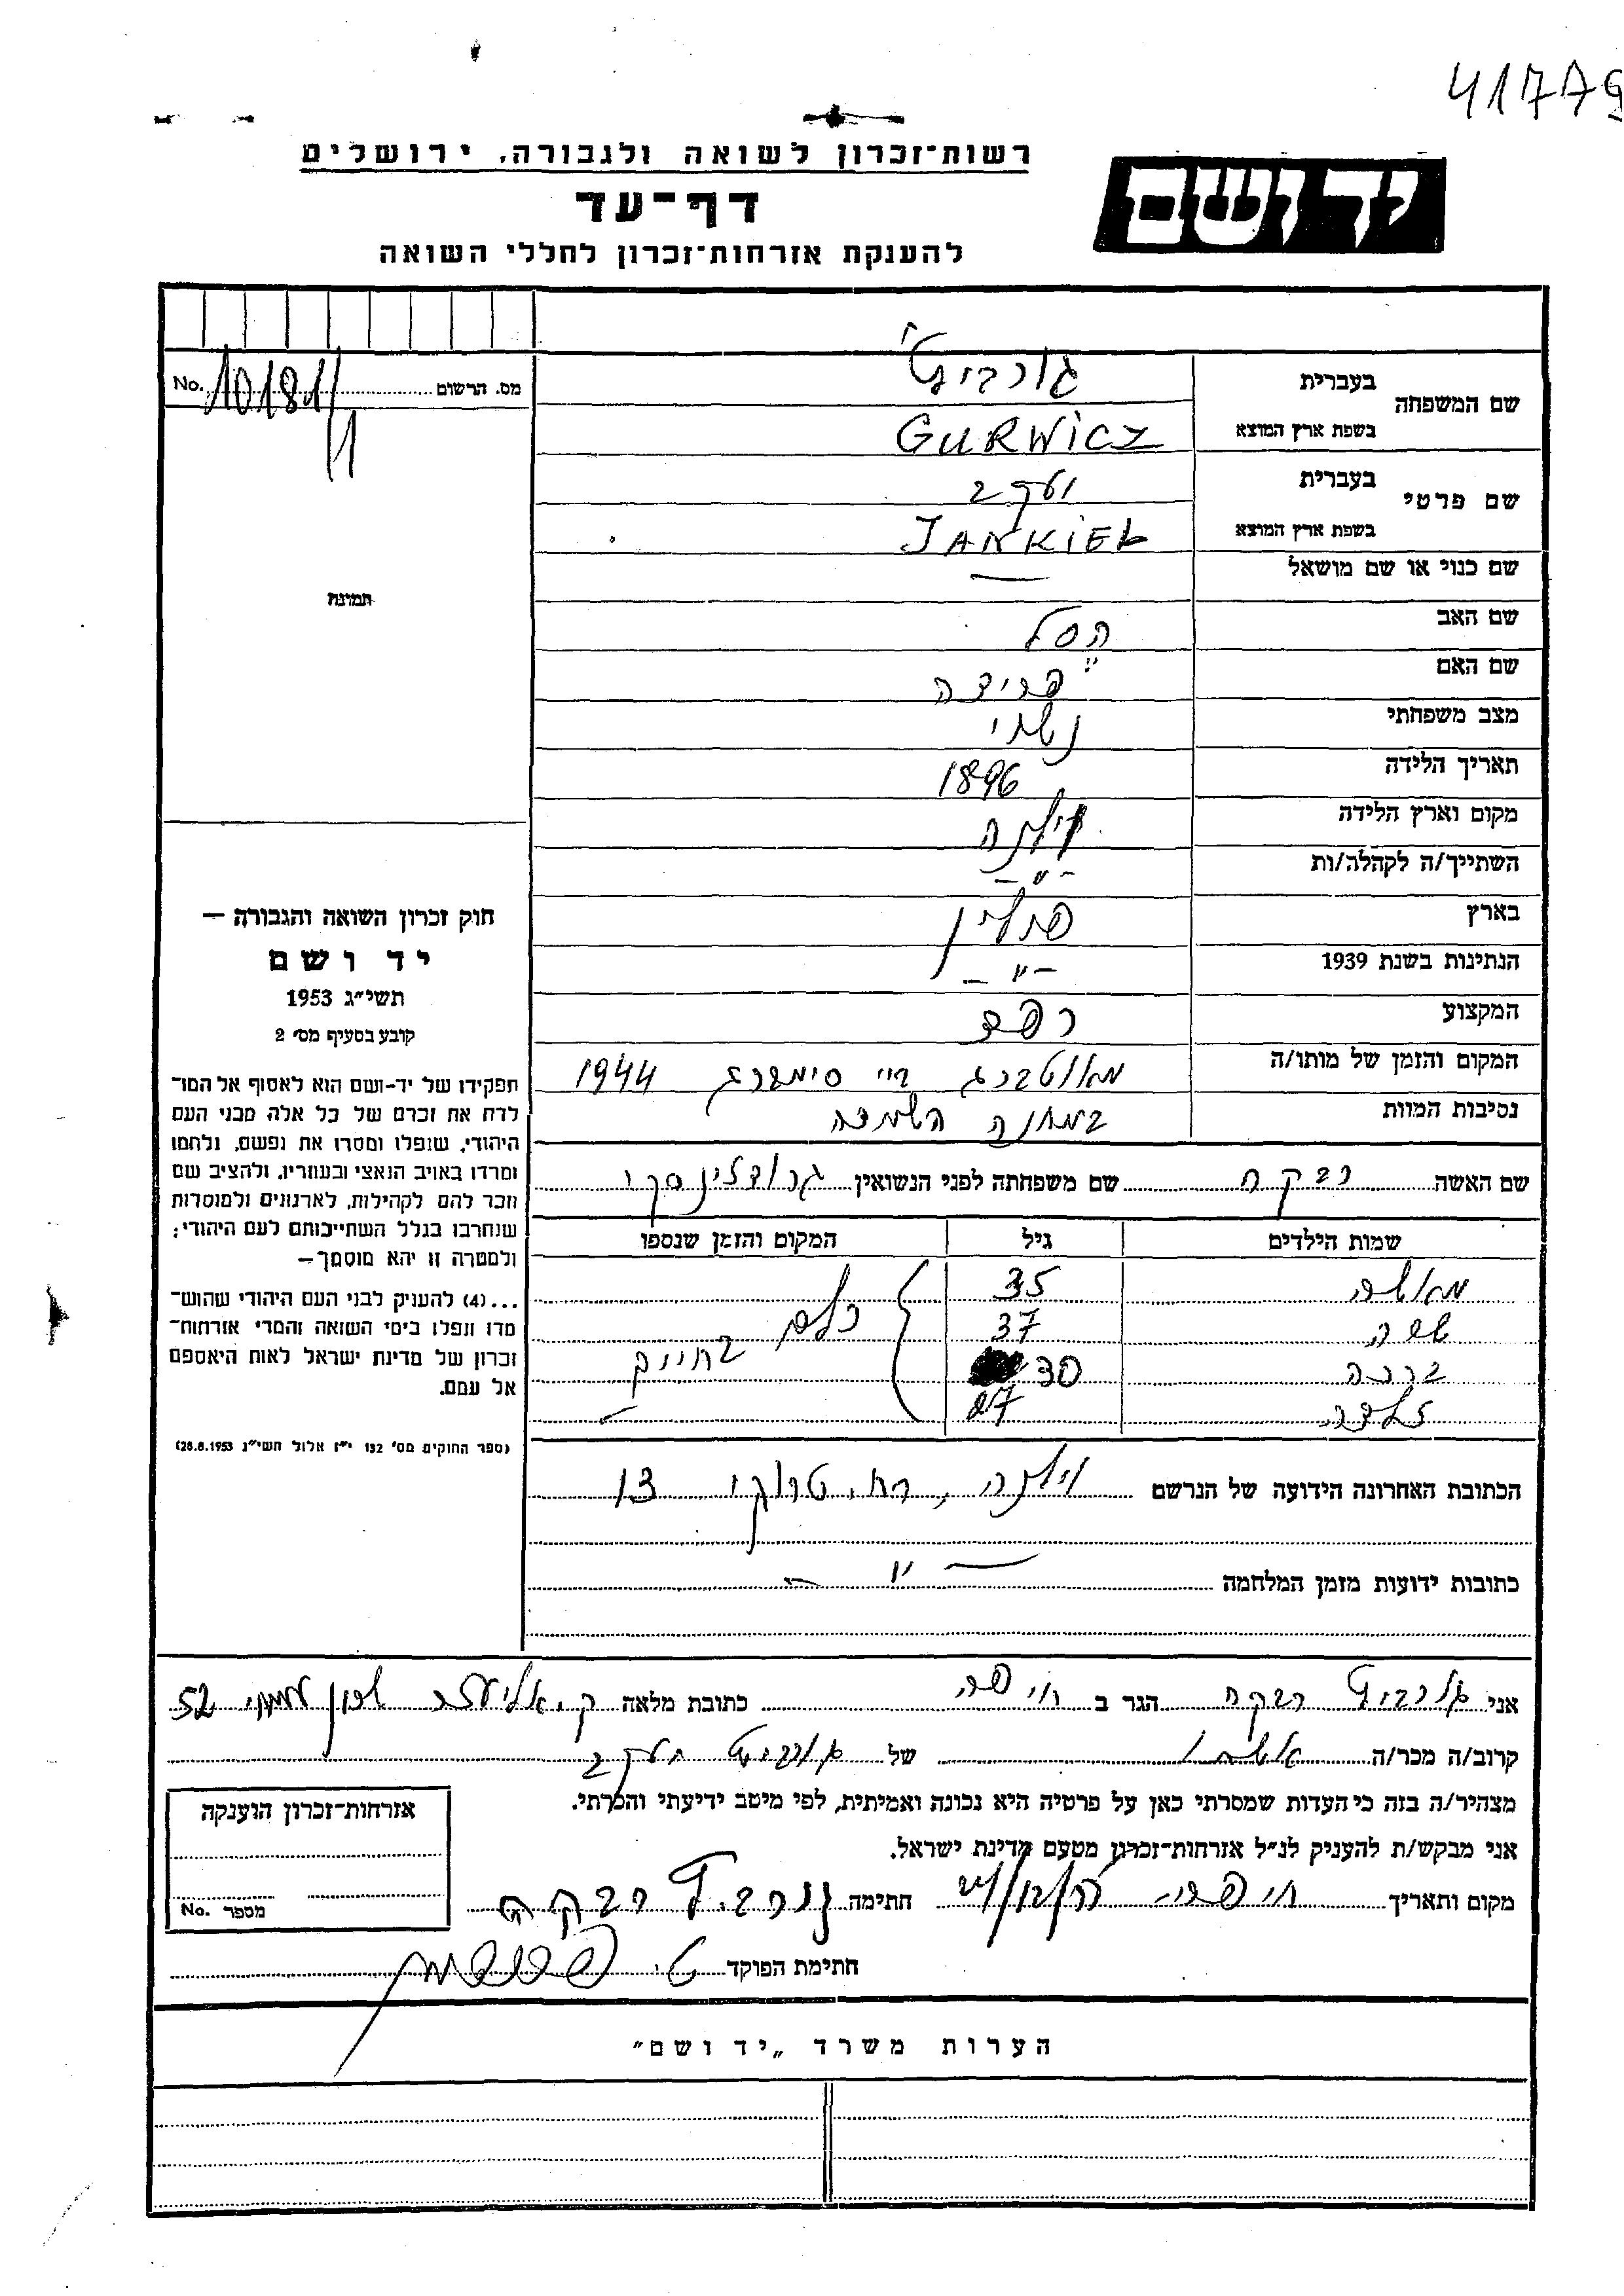 41779
רשות־זכרון לשואה ולגבורה, ירושלים
יד ושם
דף־עד
להענקת אזרחות־זכרון לחללי השואה
שם המשפחה בעברית גורביץ'
בשפת ארץ המוצא GURWICZ
שם פרטי בעברית יעקב
בשפת ארץ המוצא JANKIEL
שם כנוי או שם מושאל —
שם האב הסל
שם האם פריידה
מצב משפחתי נשוי
תאריך הלידה 1896
מקום וארץ הלידה וילנה
השתייך/ה לקהלה/ות — " —
בארץ פולין
הנתינות בשנת 1939 — " —
המקצוע רפד
המקום והזמן של מותו/ה 1944
נסיבות המוות במחנה השמדה
שם האשה רבקה שם משפחתה לפני הנשואין גרודזינסקי
שמות הילדים גיל המקום והזמן שנספו
35
37
ברכה 30 כלם בחיים
זלדה 27
הכתובת האחרונה הידועה של הנרשם וילנה, רח. טרוקי 13
כתובות ידועות מזמן המלחמה — " —
אני גורביץ רבקה הגר ב חיפה כתובת מלאה ק. אליעזר 52
קרוב/ה מכר/ה אשתו של גורביץ יעקב
מצהיר/ה בזה כי העדות שמסרתי כאן על פרטיה היא נכונה ואמיתית, לפי מיטב ידיעתי והכרתי.
אני מבקש/ת להעניק לנ"ל אזרחות־זכרון מטעם מדינת ישראל.
מקום ותאריך חיפה חתימה גורביץ רבקה
חתימת הפוקד
מס. הרשום No. 10181/
תמונה
חוק זכרון השואה והגבורה —
יד ושם
תשי"ג 1953
קובע בסעיף מס' 2
תפקידו של יד-ושם הוא לאסוף אל המו־
לדת את זכרם של כל אלה מבני העם
היהודי, שנפלו ומסרו את נפשם, נלחמו
ומרדו באויב הנאצי ובעוזריו, ולהציב שם
וזכר להם לקהילות, לארגונים ולמוסדות
שנחרבו בגלל השתייכותם לעם היהודי;
ולמטרה זו יהא מוסמך—
...(4) להעניק לבני העם היהודי שהוש־
מדו ונפלו בימי השואה והמרי אזרחות־
זכרון של מדינת ישראל לאות היאספם
אל עמם.
(ספר החוקים מס' 132 י"ז אלול תשי"ג 28.8.1953)
אזרחות־זכרון הוענקה
מספר No.
הערות משרד „יד ושם"